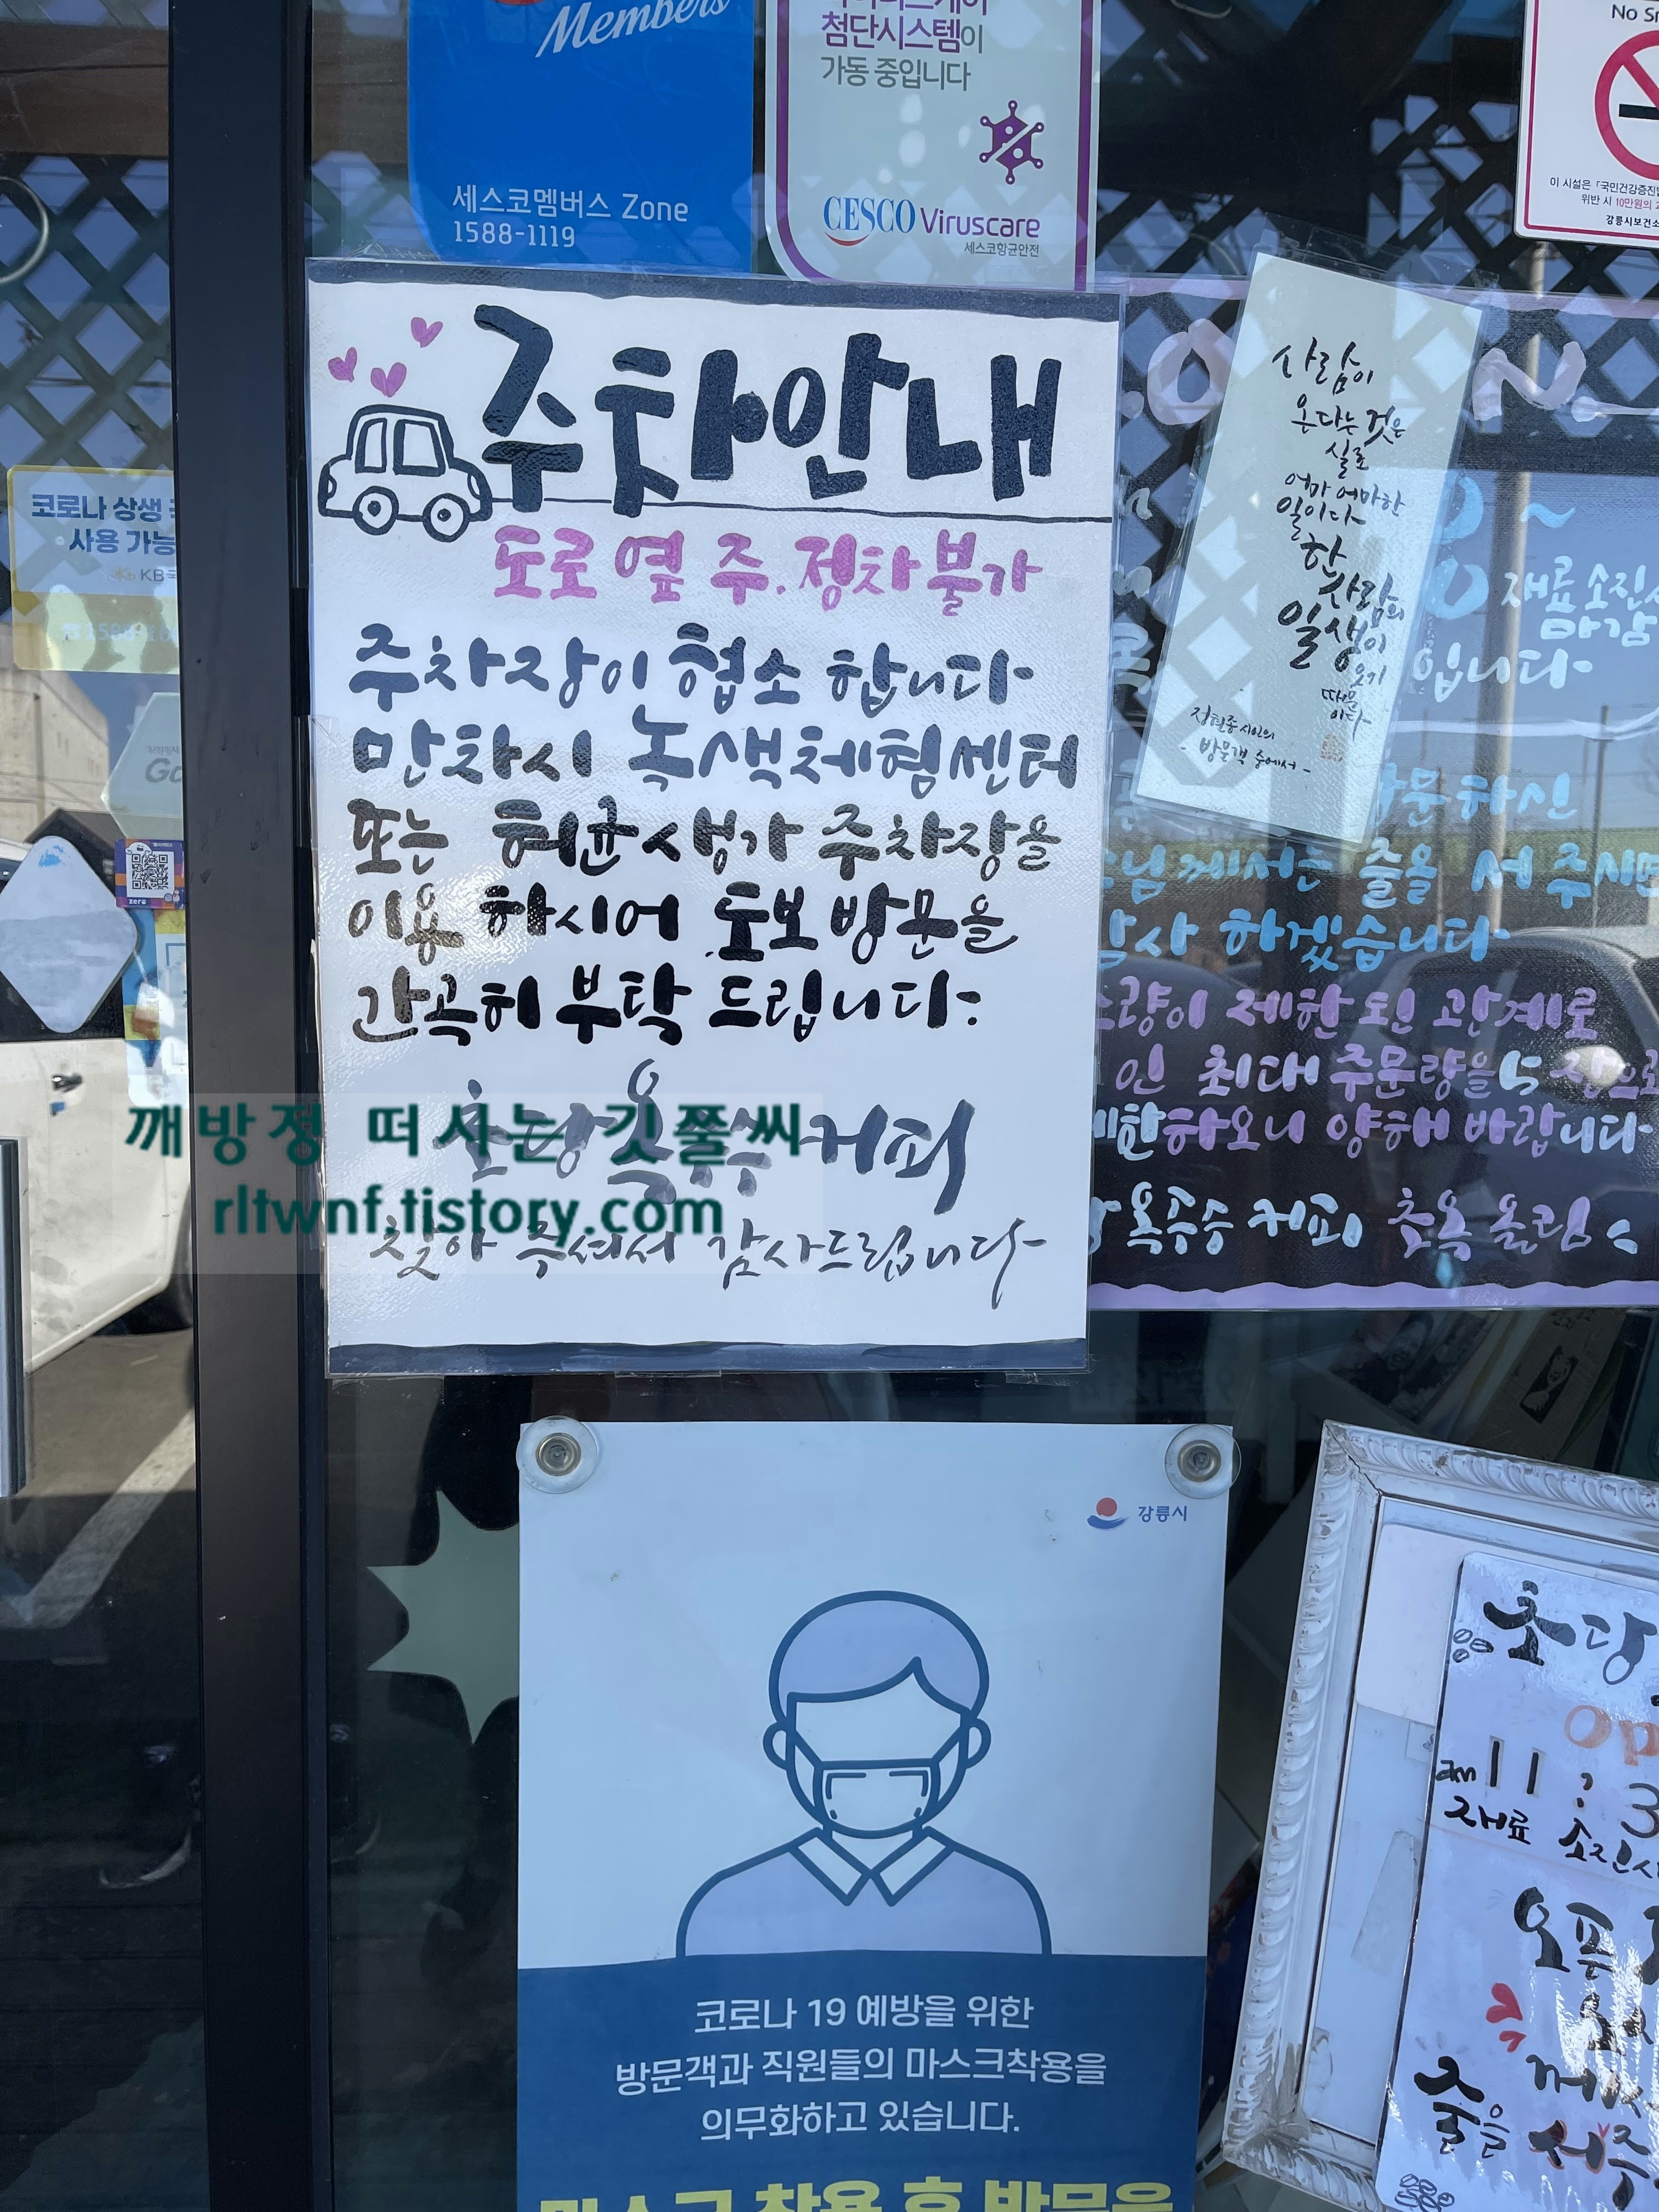 Members
세스코멤버스 Zone
1588-1119
첨단시스템이
가동 중입니다
CESCO Viruscare
세스코항균안전
No
이 시설은
위반 시 10만원의
코로나 상생
사용 가능
KB
zero
주차안내
도로 옆 주.정차불가
주차장이 협소 합니다
만차시 녹색체험센터
또는 허균생가 주차장을
이용 하시어 도보 방문을
간곡히 부탁 드립니다:
초당옥수수커피
찾아 주셔서 감사드립니다
깨방정 떠시는 깃쭐씨
rltwnf.tistory.com
사람이
온다는 것은
실로
어마어마한
일이다
한
사람의
일생이
오기
때문
이다
정현종 시인의
- 방문객 중에서 -
재료 소진시
마감
입니다
방문하신
께서는 줄을 서 주시면
감사 하겠습니다
제한 된 관계로
인 최대 주문량을 5잔으로
제한하오니 양해 바랍니다
옥수수 커피 촛옥 올림
강릉시
코로나 19 예방을 위한
방문객과 직원들의 마스크착용을
의무화하고 있습니다.
마스크 착용 후 방문을
초당
am 11 : 3
재료 소진시
오픈
줄을 서주